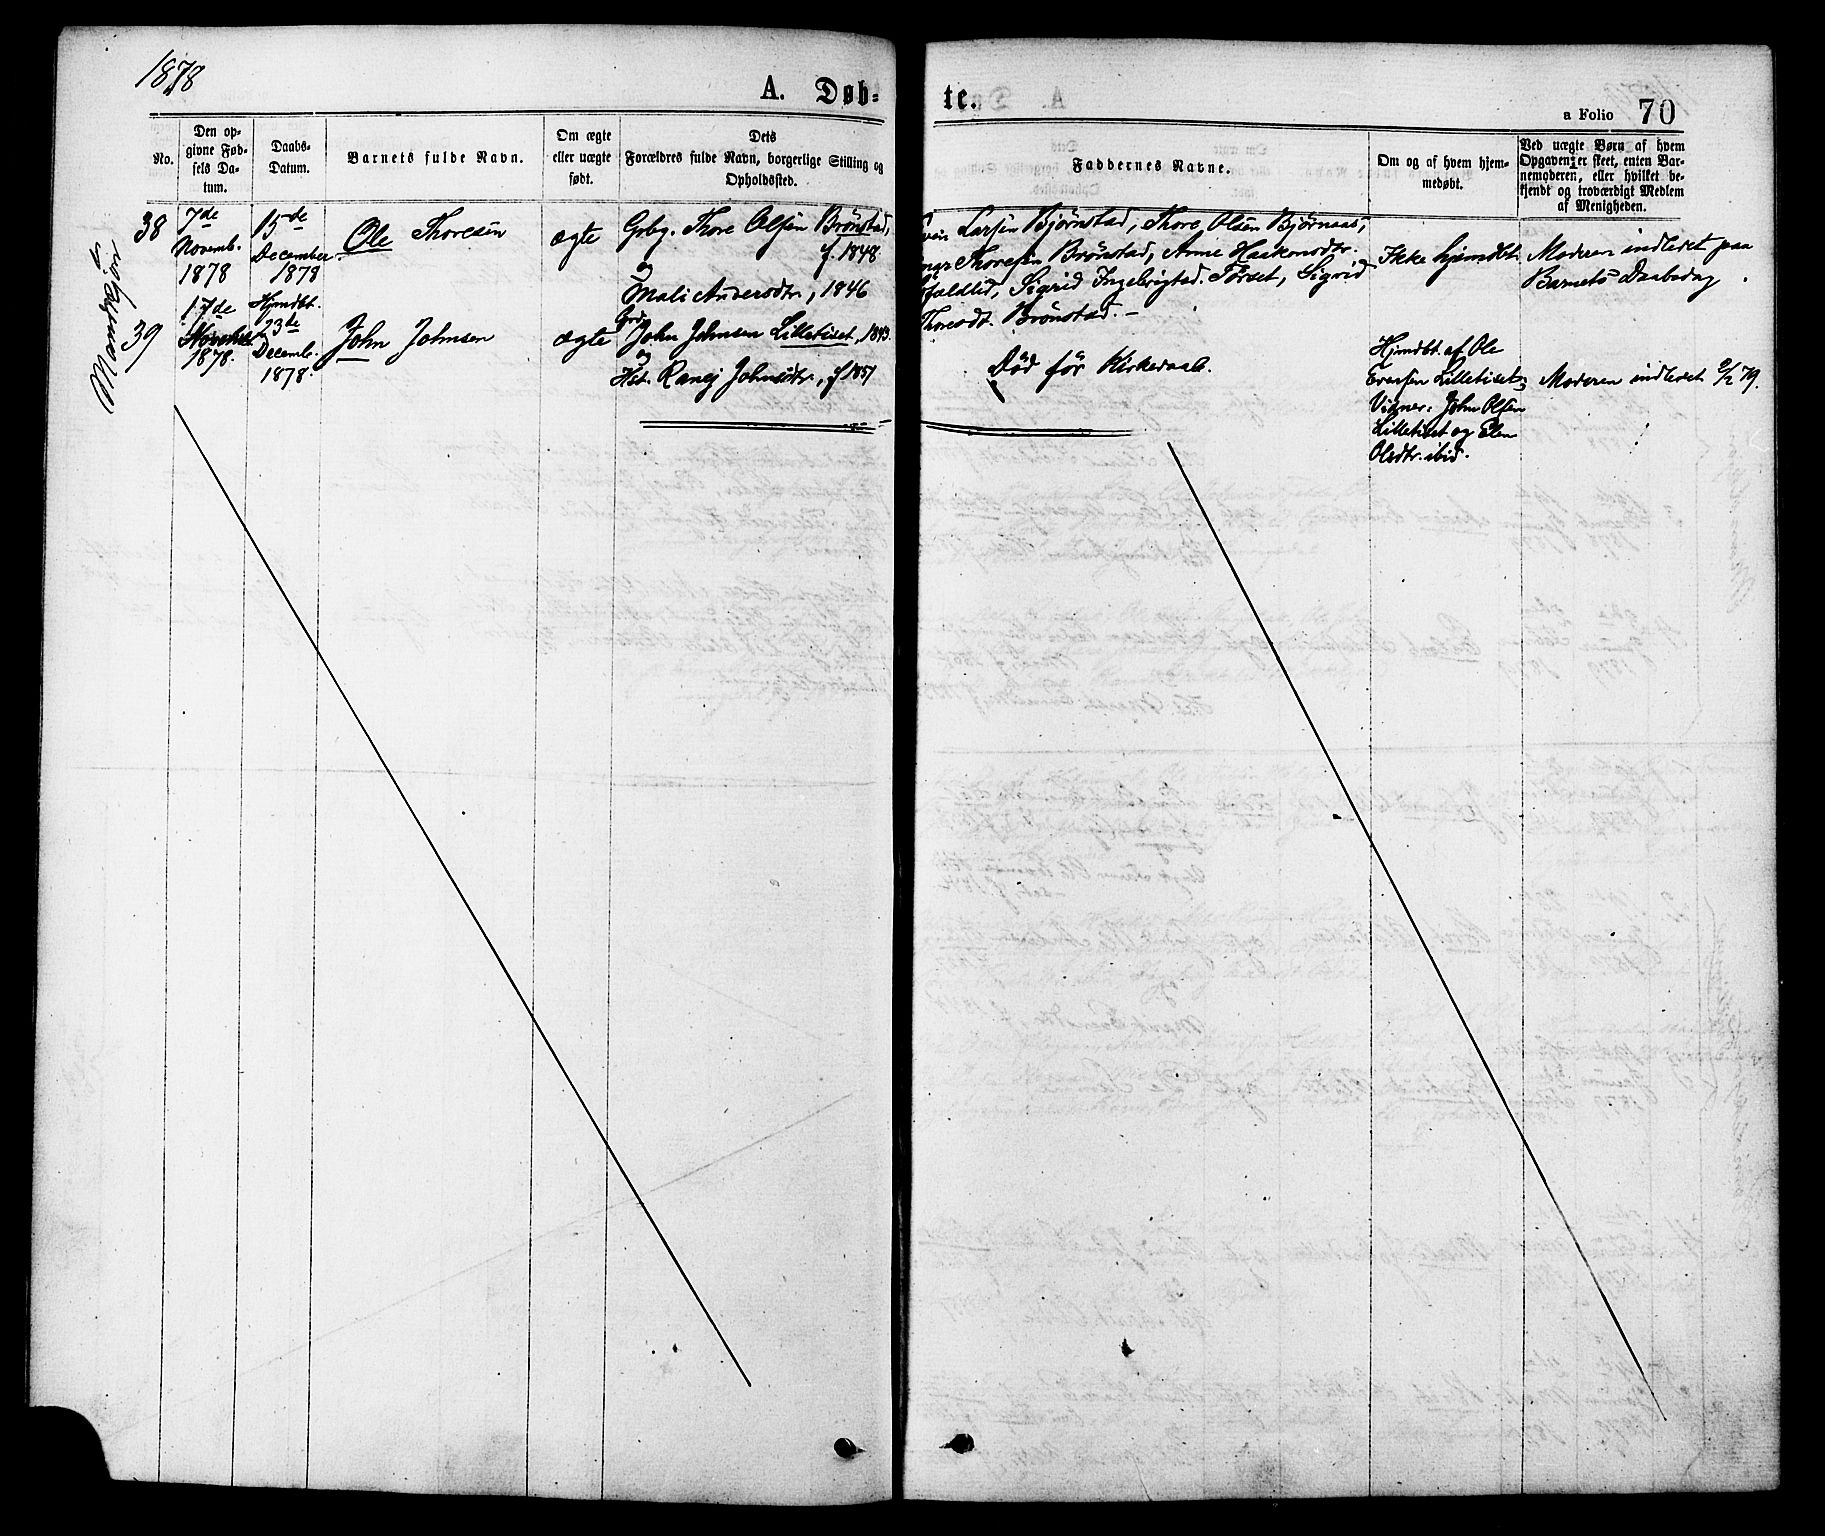 1878
A. Døb-
te.
a Folio 70
No.
Den op-
givne Fød-
sels Da-
tum.
Daabs-
Datum.
Barnets fulde Navn.
Om ægte
eller uægte
født.
Dets
Forældres fulde Navn, borgerlige Stilling og
Opholdssted.
Faddernes Navne.
Om og af hvem hjem-
medøbt.
Ved uægte Børn af hvem
Opgaven er skeet, enten Bar-
nemoderen, eller hvilket be-
kjendt og troværdigt Medlem
af Menigheden.
Mandkjøn
38
7de
Novemb.
1878
15de
December
1878
Ole Thoresen
ægte
Grbg. Thore Olsen Brönstad,
f. 1848
og
Mali Andersdtr, 1846
Larsen Bjørnstad, Thore Olsen Bjørnaas,
Thoresen Brönstad, Anne Haakonsdtr.
Sigrid Ingebrigtsd. Törset, Sigrid
Thoresdt. Brönstad. -
Ikke hjemdbt.
Moderen indledet paa
Barnets Daabsdag
39
17de
1878.
Hjmdbt.
13de
Decemb.
1878.
John Johnsen
ægte
John Johnsen Lilletiset, 1843.
og
Hst. Ranej Johnsdtr, f 1851
Död för Kirkedaab.
Hjmdbt. af Ole
Evensen Lilletiset,
Vidner: John Olsen
Lilletiset og Elen
Olsdtr. ibid.
Moderen indledet 9/2 79.